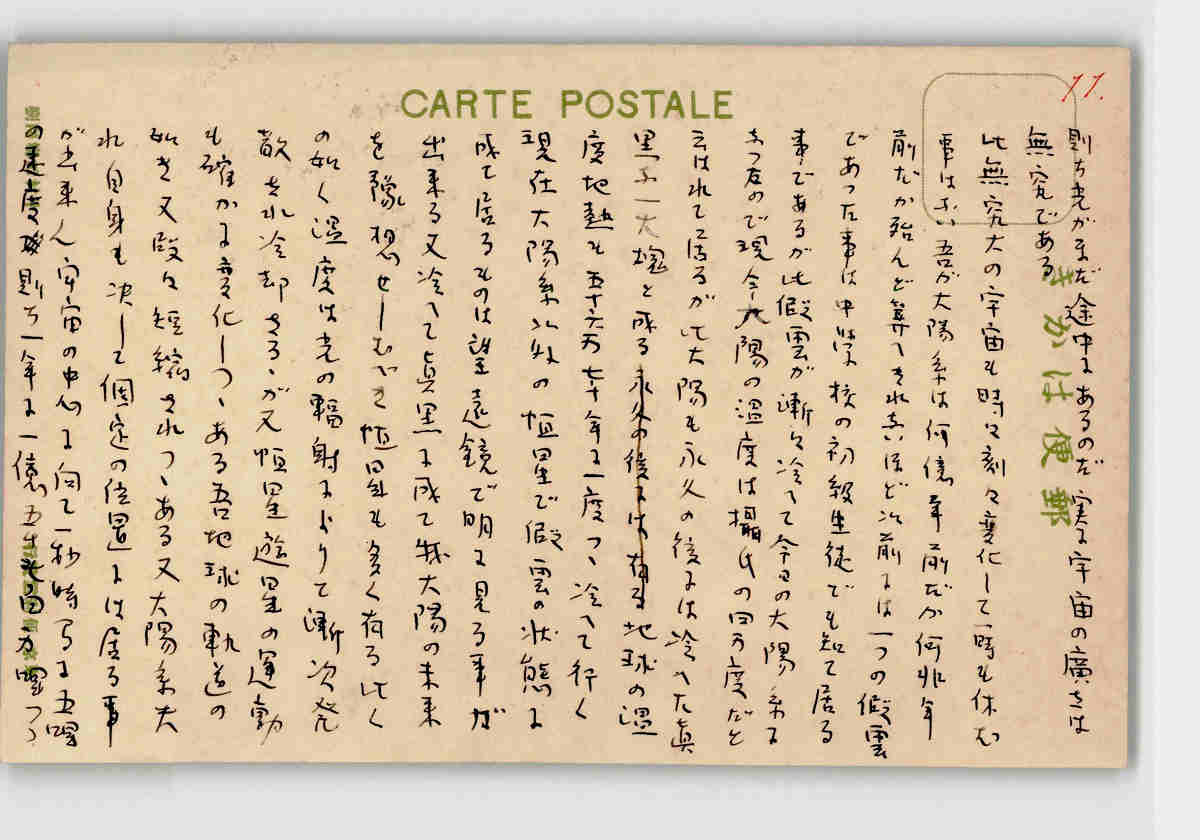 11.
CARTE POSTALE
きかは便郵
則ち光がまだ途中にあるのだ 実に宇宙の廣さは
無究である
此無究大の宇宙も時々刻々変化して一時も休む
事はない 吾が大陽系は何億年前だか何兆年
前だか殆んど算へきれないほど以前には一つの假雲
であった事は中学校の初級生徒でも知て居る
事であるが此假雲が漸々冷へて今日の大陽系に
なったので現今大陽の温度は攝氏の四万度だと
云はれて居るが此大陽も永久の後には冷へた真
黒な一大塊と成る 地球の温
度地熱も五十六万七千年に一度つゝ冷へて行く
現在大陽系以外の恒星で假雲の状態に
成て居るものは望遠鏡で明に見る事が
出来る又冷へて真黒に成て我大陽の未来
を豫想せしむべき恒星も多く有る此く
の如く温度は光の輻射によりて漸次発
散され冷却さるゝが又恒星遊星の運動
も確かに変化しつゝある吾地球の軌道の
如き又段々短縮されつゝある又大陽系夫
れ自身も決して個定の位置には居る事
が出来ん宇宙の中心に向て一秒時間に五哩
の速度 則ち一年に一億五千 百万哩つゝ